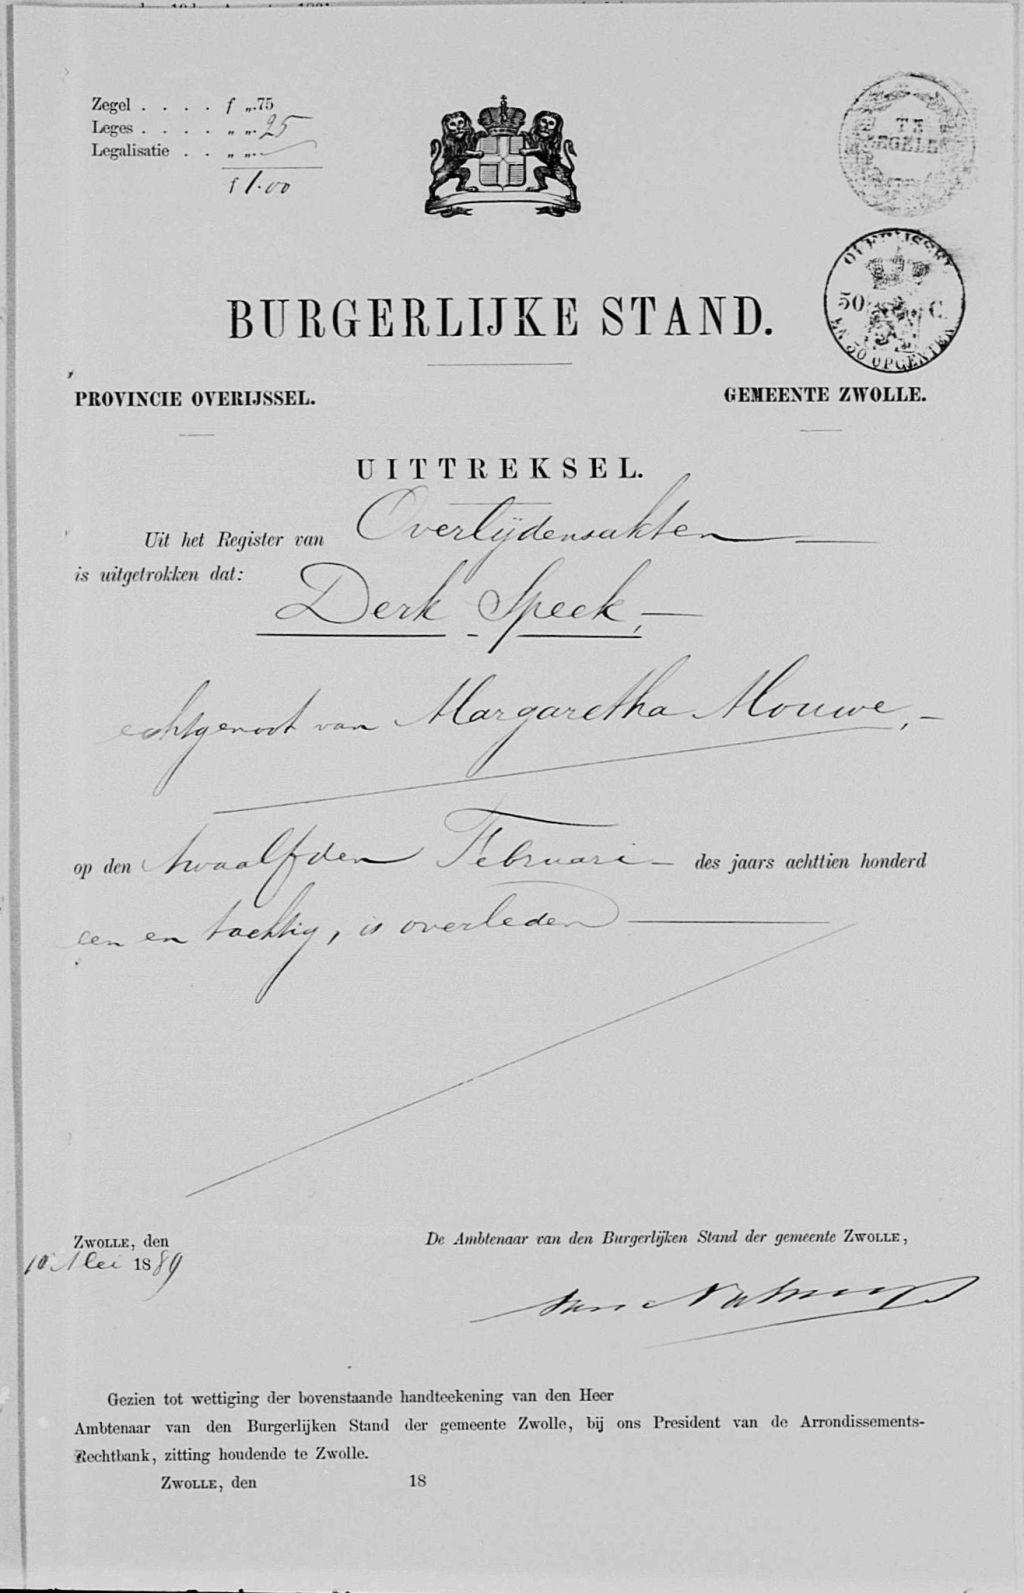 Zegel . . . . f „.75
Leges . . . . „ „.25
Legalisatie . . „ „.—
f 1.00
TE
ZEGELEN
OVERIJSSEL
50 C.
EN 50 OPCENTEN
BURGERLIJKE STAND.
PROVINCIE OVERIJSSEL.
GEMEENTE ZWOLLE.
UITTREKSEL.
Uit het Register van Overlijdensakten
is uitgetrokken dat:
Derk Speek,
echtgenoot van Margaretha Mouwe,
op den twaalfden Februari des jaars achttien honderd
een en tachtig, is overleden
ZWOLLE, den
10 Mei 1889
De Ambtenaar van den Burgerlijken Stand der gemeente ZWOLLE,
Gezien tot wettiging der bovenstaande handteekening van den Heer
Ambtenaar van den Burgerlijken Stand der gemeente Zwolle, bij ons President van de Arrondissements-
Rechtbank, zitting houdende te Zwolle.
ZWOLLE, den 18